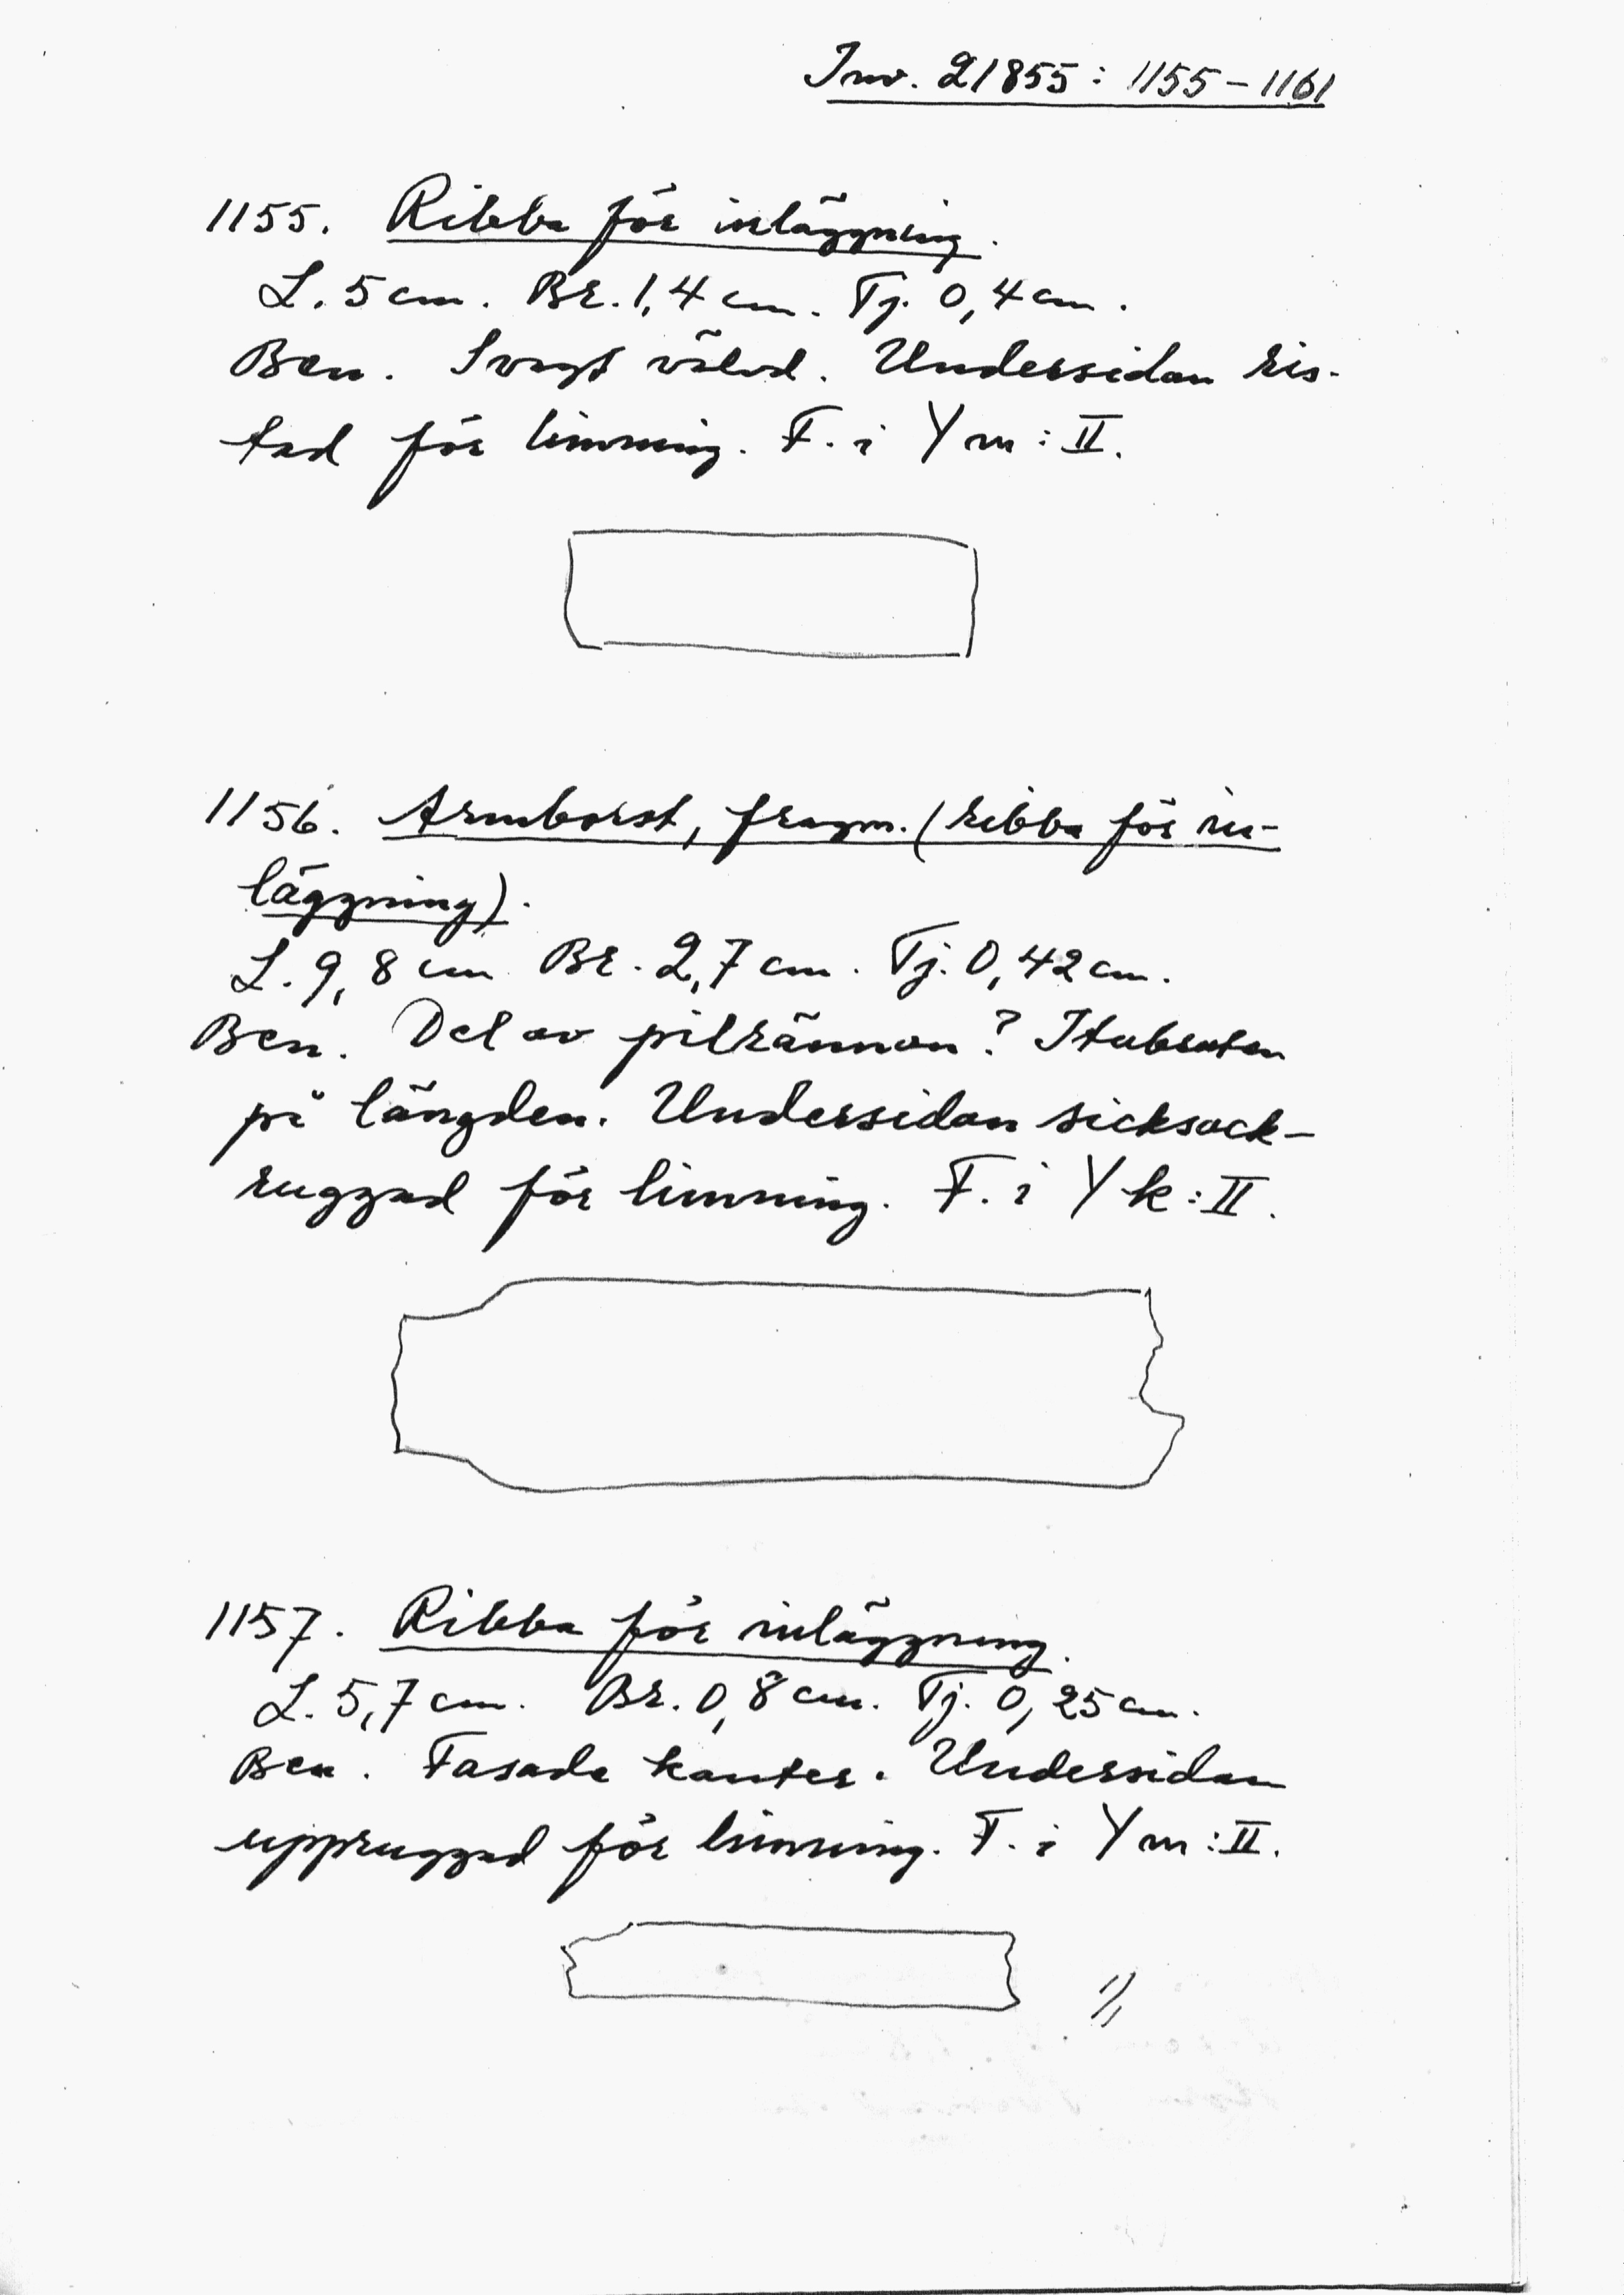 Inv. 21855: 1155-1161
1155. Ribba för inläggning.
L. 5 cm. Br. 1,4 cm. Tj. 0,4 cm.
Ben. Svagt välvd. Undersidan ris-
tad för limning. F. i Ym:II.
1156. Armborst, fragm. (ribba för in-
läggning).
L. 9,8 cm Br. 2,7 cm. Tj. 0,42 cm.
Ben. Del av pilrännan? Itubruten
på längden. Undersidan sicksack-
ruggad för limning. F. i Yk:II.
1157. Ribba för inläggning.
L. 5,7 cm. Br. 0,8 cm. Tj. 0,25 cm.
Ben. Fasade kanter. Undersidan
uppruggad för limning. F. i Ym:II.